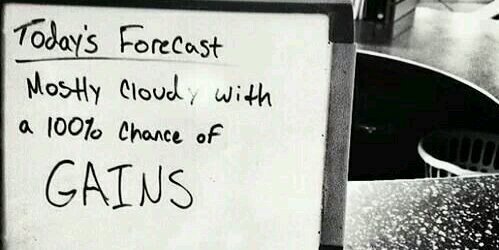 Today's Forecast
Mostly Cloudy with
a 100% Chance of
GAINS